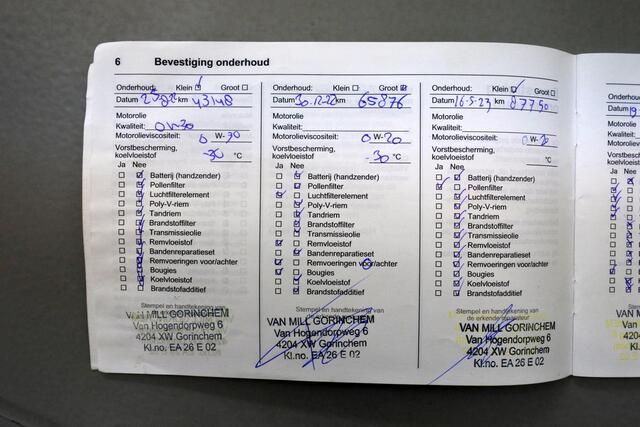 6 Bevestiging onderhoud
Onderhoud: Klein Groot
Datum km 43148
Motorolie
Kwaliteit: 0W-30
Motorolieviscositeit: 0 W-30
Vorstbescherming,
koelvloeistof -30 °C
Ja Nee
Batterij (handzender)
Pollenfilter
Luchtfilterelement
Poly-V-riem
Tandriem
Brandstoffilter
Transmissieolie
Remvloeistof
Bandenreparatieset
Remvoeringen voor/achter
Bougies
Koelvloeistof
Brandstofadditief
Stempel en handtekening van
VAN MILL GORINCHEM
Van Hogendorpweg 6
4204 XW Gorinchem
Kl.no. EA 26 E 02
Onderhoud: Klein Groot
Datum 30-12-22 km 65876
Motorolie
Kwaliteit:
Motorolieviscositeit: 0 W-20
Vorstbescherming,
koelvloeistof -30 °C
Ja Nee
Batterij (handzender)
Pollenfilter
Luchtfilterelement
Poly-V-riem
Tandriem
Brandstoffilter
Transmissieolie
Remvloeistof
Bandenreparatieset
Remvoeringen voor/achter
Bougies
Koelvloeistof
Brandstofadditief
Stempel en handtekening van
VAN MILL GORINCHEM
Van Hogendorpweg 6
4204 XW Gorinchem
Kl.no. EA 26 E 02
Onderhoud: Klein Groot
Datum 16-5-23 km 87750
Motorolie
Kwaliteit:
Motorolieviscositeit: 0 W-20
Vorstbescherming,
koelvloeistof °C
Ja Nee
Batterij (handzender)
Pollenfilter
Luchtfilterelement
Poly-V-riem
Tandriem
Brandstoffilter
Transmissieolie
Remvloeistof
Bandenreparatieset
Remvoeringen voor/achter
Bougies
Koelvloeistof
Brandstofadditief
Stempel en handtekening van
de erkende reparateur
VAN MILL GORINCHEM
Van Hogendorpweg 6
4204 XW Gorinchem
Kl.no. EA 26 E 02